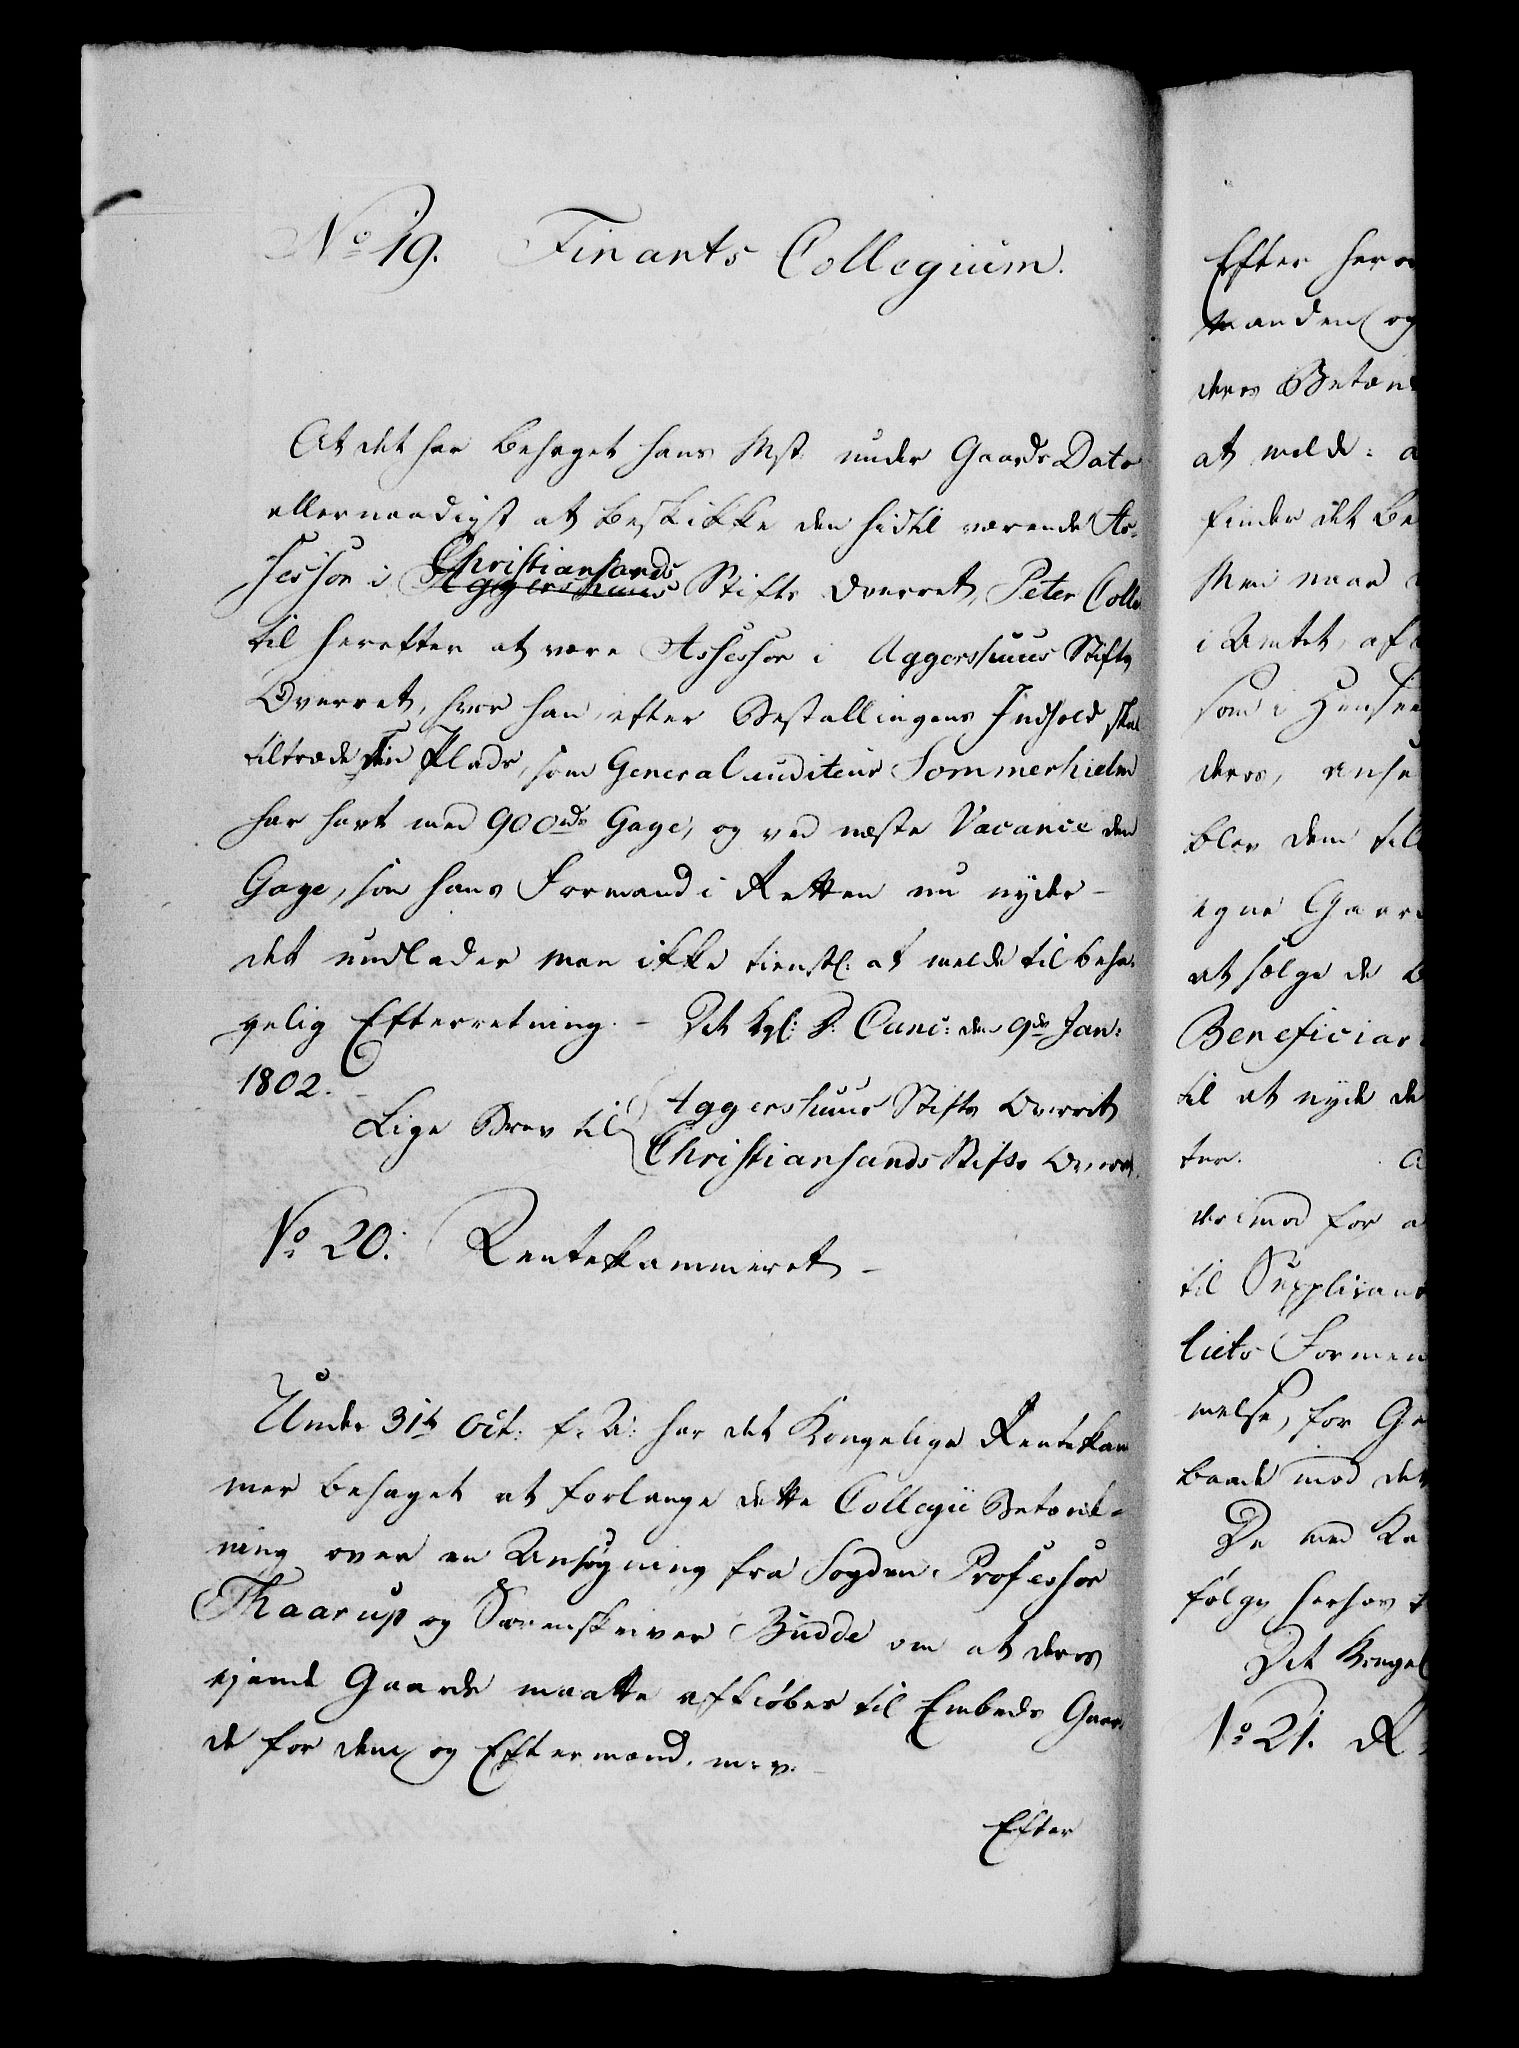 No 19. Finants Collegium.
At det har behaget hans Mst. under Gaards Dato
allernaadigst at beskikke den hidtil værende As-
sessor i Christiansands Aggershuus Stifts Overret, Peter Colle
til herefter at være Assessor i Aggershuus Stifts
Overret, hvor han efter Bestallingens Indhold skal
tiltræde den Plads, som Generalauditeur Sommerhielm
har havt med 900 rdr Gage, og ved næste Vacance den
Gage, som hans Formand i Retten nu nyder -
det undlader man ikke tienstl: at melde til beha-
gelig Efterretning. - Det kgl: D: Canc: den 9de Jan:
1802. -
Lige Brev til Aggershuus Stifts Overret
Christiansands Stifts Overret.
No 20. Rentekammeret -
Under 31te Oct: f: A: har det Kongelige Rentekam
mer behaget at forlange dette Collegii Betænk-
ning over en Ansøgning fra Fogden Professor
Thaarup og Sorenskriver Budde om at deres
ejende Gaarde maatte afkiøbes til Embeds Gaar-
de for dem og Eftermænd. m: v: -
Efter
Efter her
manden og
deres Betænk
at melde: a
finder det be
Men naar
i Amtet, af
som i Hensee
deres, anse
blev dem till
egne Gaar
at sælge de
Beneficiar
til at nyde de
ter.
derimod for a
til Supplicant
liets Formen
melse, for G
baade mod det
De med Re
følge herhos t
Det Kongel
No 21. R